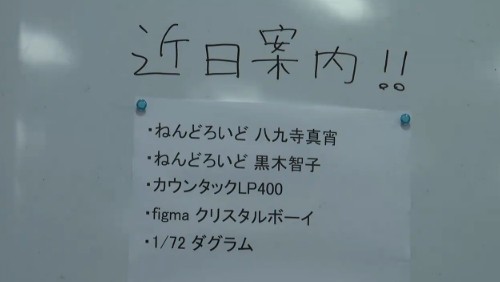 近日案内!!
・ねんどろいど 八九寺真宵
・ねんどろいど 黒木智子
・カウンタックLP400
・figma クリスタルボーイ
・1/72 ダグラム